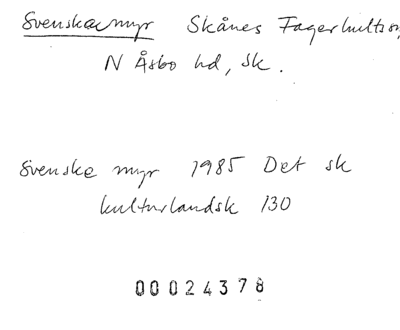 Svenske myr Skånes Fagerhults sn,
N Åsbo hd, Sk.
Svenske myr 1985 Det sk
kulturlandsk 130
00024378